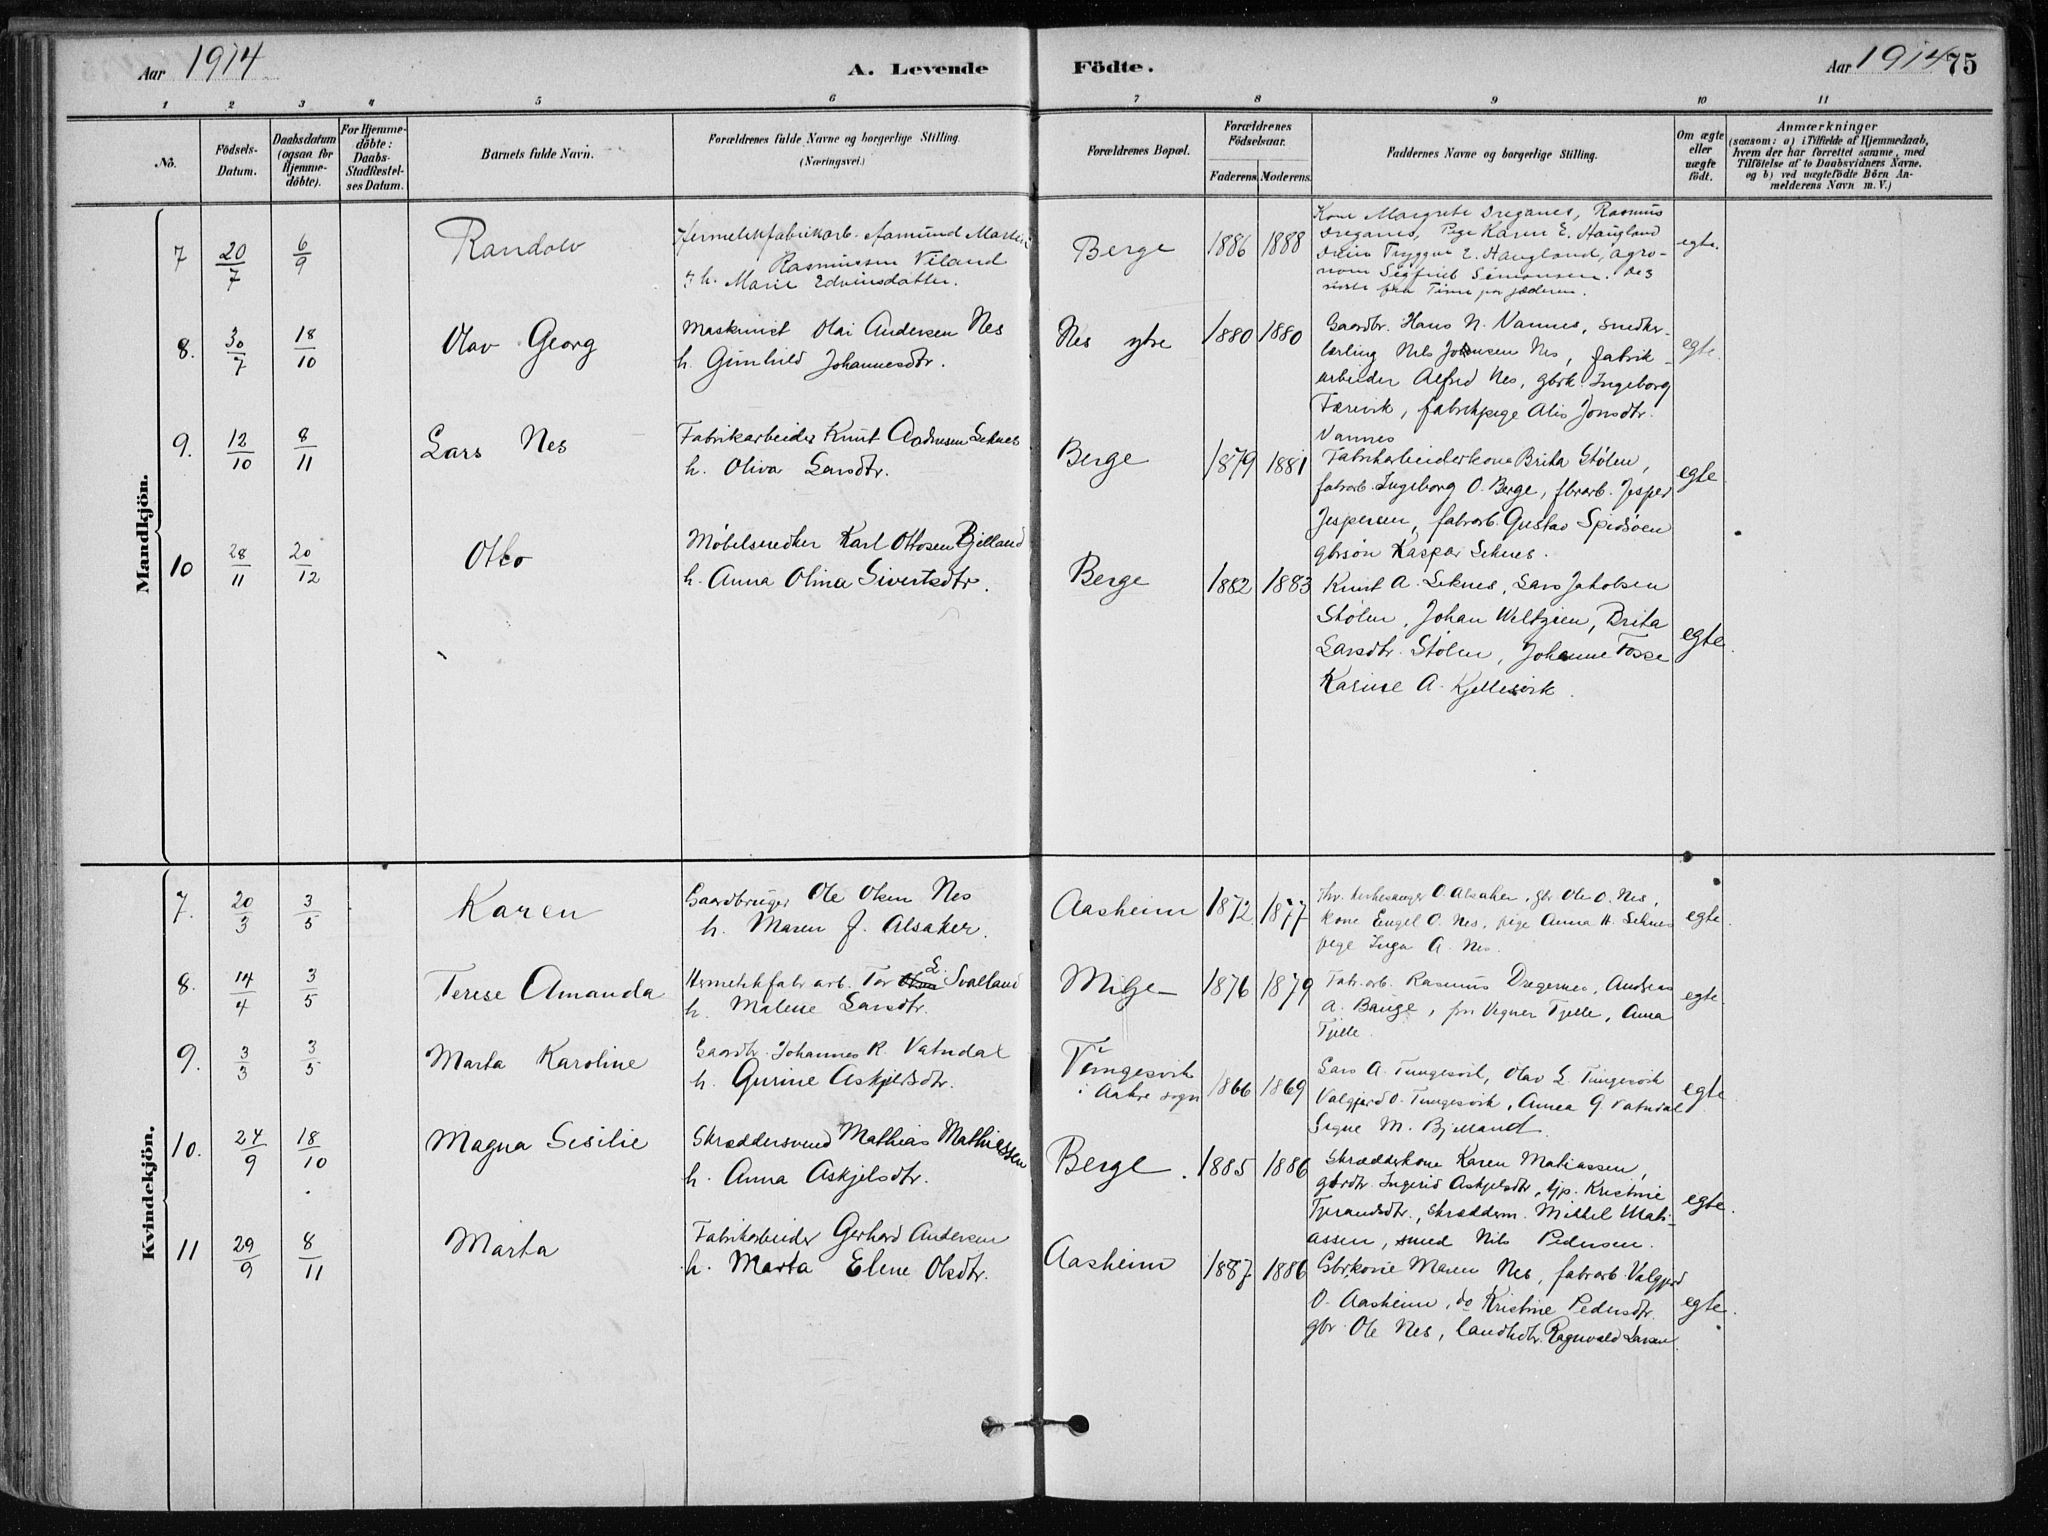 Aar 1914 A. Levende Födte. Aar 1914 75
1 2 3 4 5 6 7 8 9 10 11
No. Födsels-Datum. Daabsdatum (ogsaa for Hjemme-döbte). For Hjemme-döbte: Daabs-Stadfæstel-ses Datum. Barnets fulde Navn. Forældrenes fulde Navne og borgerlige Stilling. (Næringsvei.) Forældrenes Bopæl. Forældrenes Födselsaar. Faderens. Moderens. Faddernes Navne og borgerlige Stilling. Om ægte eller uægte födt. Anmærkninger (saasom: a) i Tilfælde af Hjemmedaab, hvem der har forrettet samme, med Tilföielse af to Daabsvidners Navne, og b) ved uægtefödte Börn An-melderens Navn m. V.)
Mandkjön.
7 20/7 6/9 Randolv Hermetikfabrikarb. Aamund Martin
Rasmussen Veland
h. Marie Edvinsdatter.
Berge 1886 1888
Kone Margrete Dreganes, Rasmus
Dreganes, Pige Karen E. Haugland
Tryggve E. Haugland, agro-
nom Sigfred Simonsen. Des
sidste fra Time paa Jæderen.
egte.
8. 30/7 18/10 Olav Georg Maskinist Olai Andersen Nes
h. Gunhild Johannesdtr.
Nes ytre 1880 1880
Gaardbr. Hans N. Vannes, snedker-
lærling Nils Johnsen Nes, fabrik-
arbeider Alfred Nes, gbrk. Ingeborg
Tærevik, fabrikpige Alis Jonsdtr.
Vannes
egte.
9. 12/10 8/11 Lars Nes Fabrikarbeider Knut Andresen Seknes
h. Oliva Larsdtr.
Berge 1879 1881
Fabrikarbeiderkone Brita Stølen,
fabrarb. Ingeborg O. Berge, fbrarb. Jesper
Jespersen, fabrarb. Gustav Spidsøen
gbrsøn Kaspar Seknes.
egte
10 28/11 20/12 Otto Møbelsnedker Karl Ottosen Bjelland
h. Anna Olina Sivertsdtr.
Berge 1882 1883
Knut A. Seknes, Lars Jakobsen
Stølen, Johan Weltzien, Brita
Larsdtr. Stølen, Johanne Fosse
Karine A. Kjellesvik.
egte.
Kvindekjön.
7. 20/3 3/5 Karen Gaardbruger Ole Olsen Nes
h. Maren J. Alsaker.
Aasheim 1872 1877
kirkesanger O. Alsaker, gbr Ole O. Nes,
Kone Engel O. Nes, pige Anna H. Seknes
pige Inga A. Nes.
egte.
8. 14/4 3/5 Terese Amanda Hermetikfabr arb. Tor L. Svalland
h. Malene Larsdtr.
Milje 1876 1879
Fabr.arb. Rasmus Dregernes, Andreas
A. Bauge, fru Vegner Tjelle, Anna
Tjelle.
egte.
9. 3/3 3/5 Marta Karoline Gaardbr. Johannes R. Vatndal
h. Gurine Askjelsdtr.
Tungesvik
i Aakre sogn
1866 1869
Lars A. Tungesvik, Olav L. Tungesvik
Valgjerd O. Tungesvik, Anna G Vatndal
Signe M. Bjelland.
egte.
10. 24/9 18/10 Magna Sesilie Skræddersvend Mathias Mathiessen
h. Anna Askjelsdtr.
Berge. 1885 1886
Skrædderkone Karen Matiassen,
gbrdtr. Ingerid Askjelsdtr, tjp. Kristine
Tjerandsdtr., skrædderm. Mikkel Mati-
assen, smed Nils Pedersen.
egte.
11 29/9 8/11 Marta Fabrikarbeider Gerhard Andersen
h. Marta Elene Olsdtr.
Aasheim 1887 1886
Gbrkone Maren Nes, fabrarb. Valgjerd
O. Aasheim, do Kristine Pedersdtr.
gbr. Ole Nes, landhdtr. Ragnvald Larsen
egte.